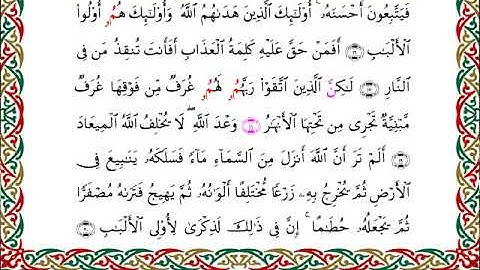 فَيَتَّبِعُونَ أَحْسَنَهُۥٓ ۚ أُو۟لَٰٓئِكَ ٱلَّذِينَ هَدَىٰهُمُ ٱللَّهُ وَأُو۟لَٰٓئِكَ هُمُۥٓ أُو۟لُوا۟
ٱلْأَلْبَٰبِ ١٦ أَفَمَنْ حَقَّ عَلَيْهِ كَلِمَةُ ٱلْعَذَابِ أَفَأَنتَ تُنقِذُ مَن فِي
ٱلنَّارِ ١٧ لَٰكِنَّ ٱلَّذِينَ ٱتَّقَوْا۟ رَبَّهُمُۥ لَهُمُۥ غُرَفٌ مِّن فَوْقِهَا غُرَفٌ
مَّبْنِيَّةٌ تَجْرِي مِن تَحْتِهَا ٱلْأَنْهَٰرُ ١٨ وَعْدَ ٱللَّهِ ۖ لَا يُخْلِفُ ٱللَّهُ ٱلْمِيعَادَ
١٩ أَلَمْ تَرَ أَنَّ ٱللَّهَ أَنزَلَ مِنَ ٱلسَّمَآءِ مَآءً فَسَلَكَهُۥ يَنَٰبِيعَ فِي
ٱلْأَرْضِ ثُمَّ يُخْرِجُ بِهِۦ زَرْعًا مُّخْتَلِفًا أَلْوَٰنُهُۥ ثُمَّ يَهِيجُ فَتَرَىٰهُ مُصْفَرًّا
ثُمَّ يَجْعَلُهُۥ حُطَٰمًا ۚ إِنَّ فِي ذَٰلِكَ لَذِكْرَىٰ لِأُو۟لِي ٱلْأَلْبَٰبِ ٢٠